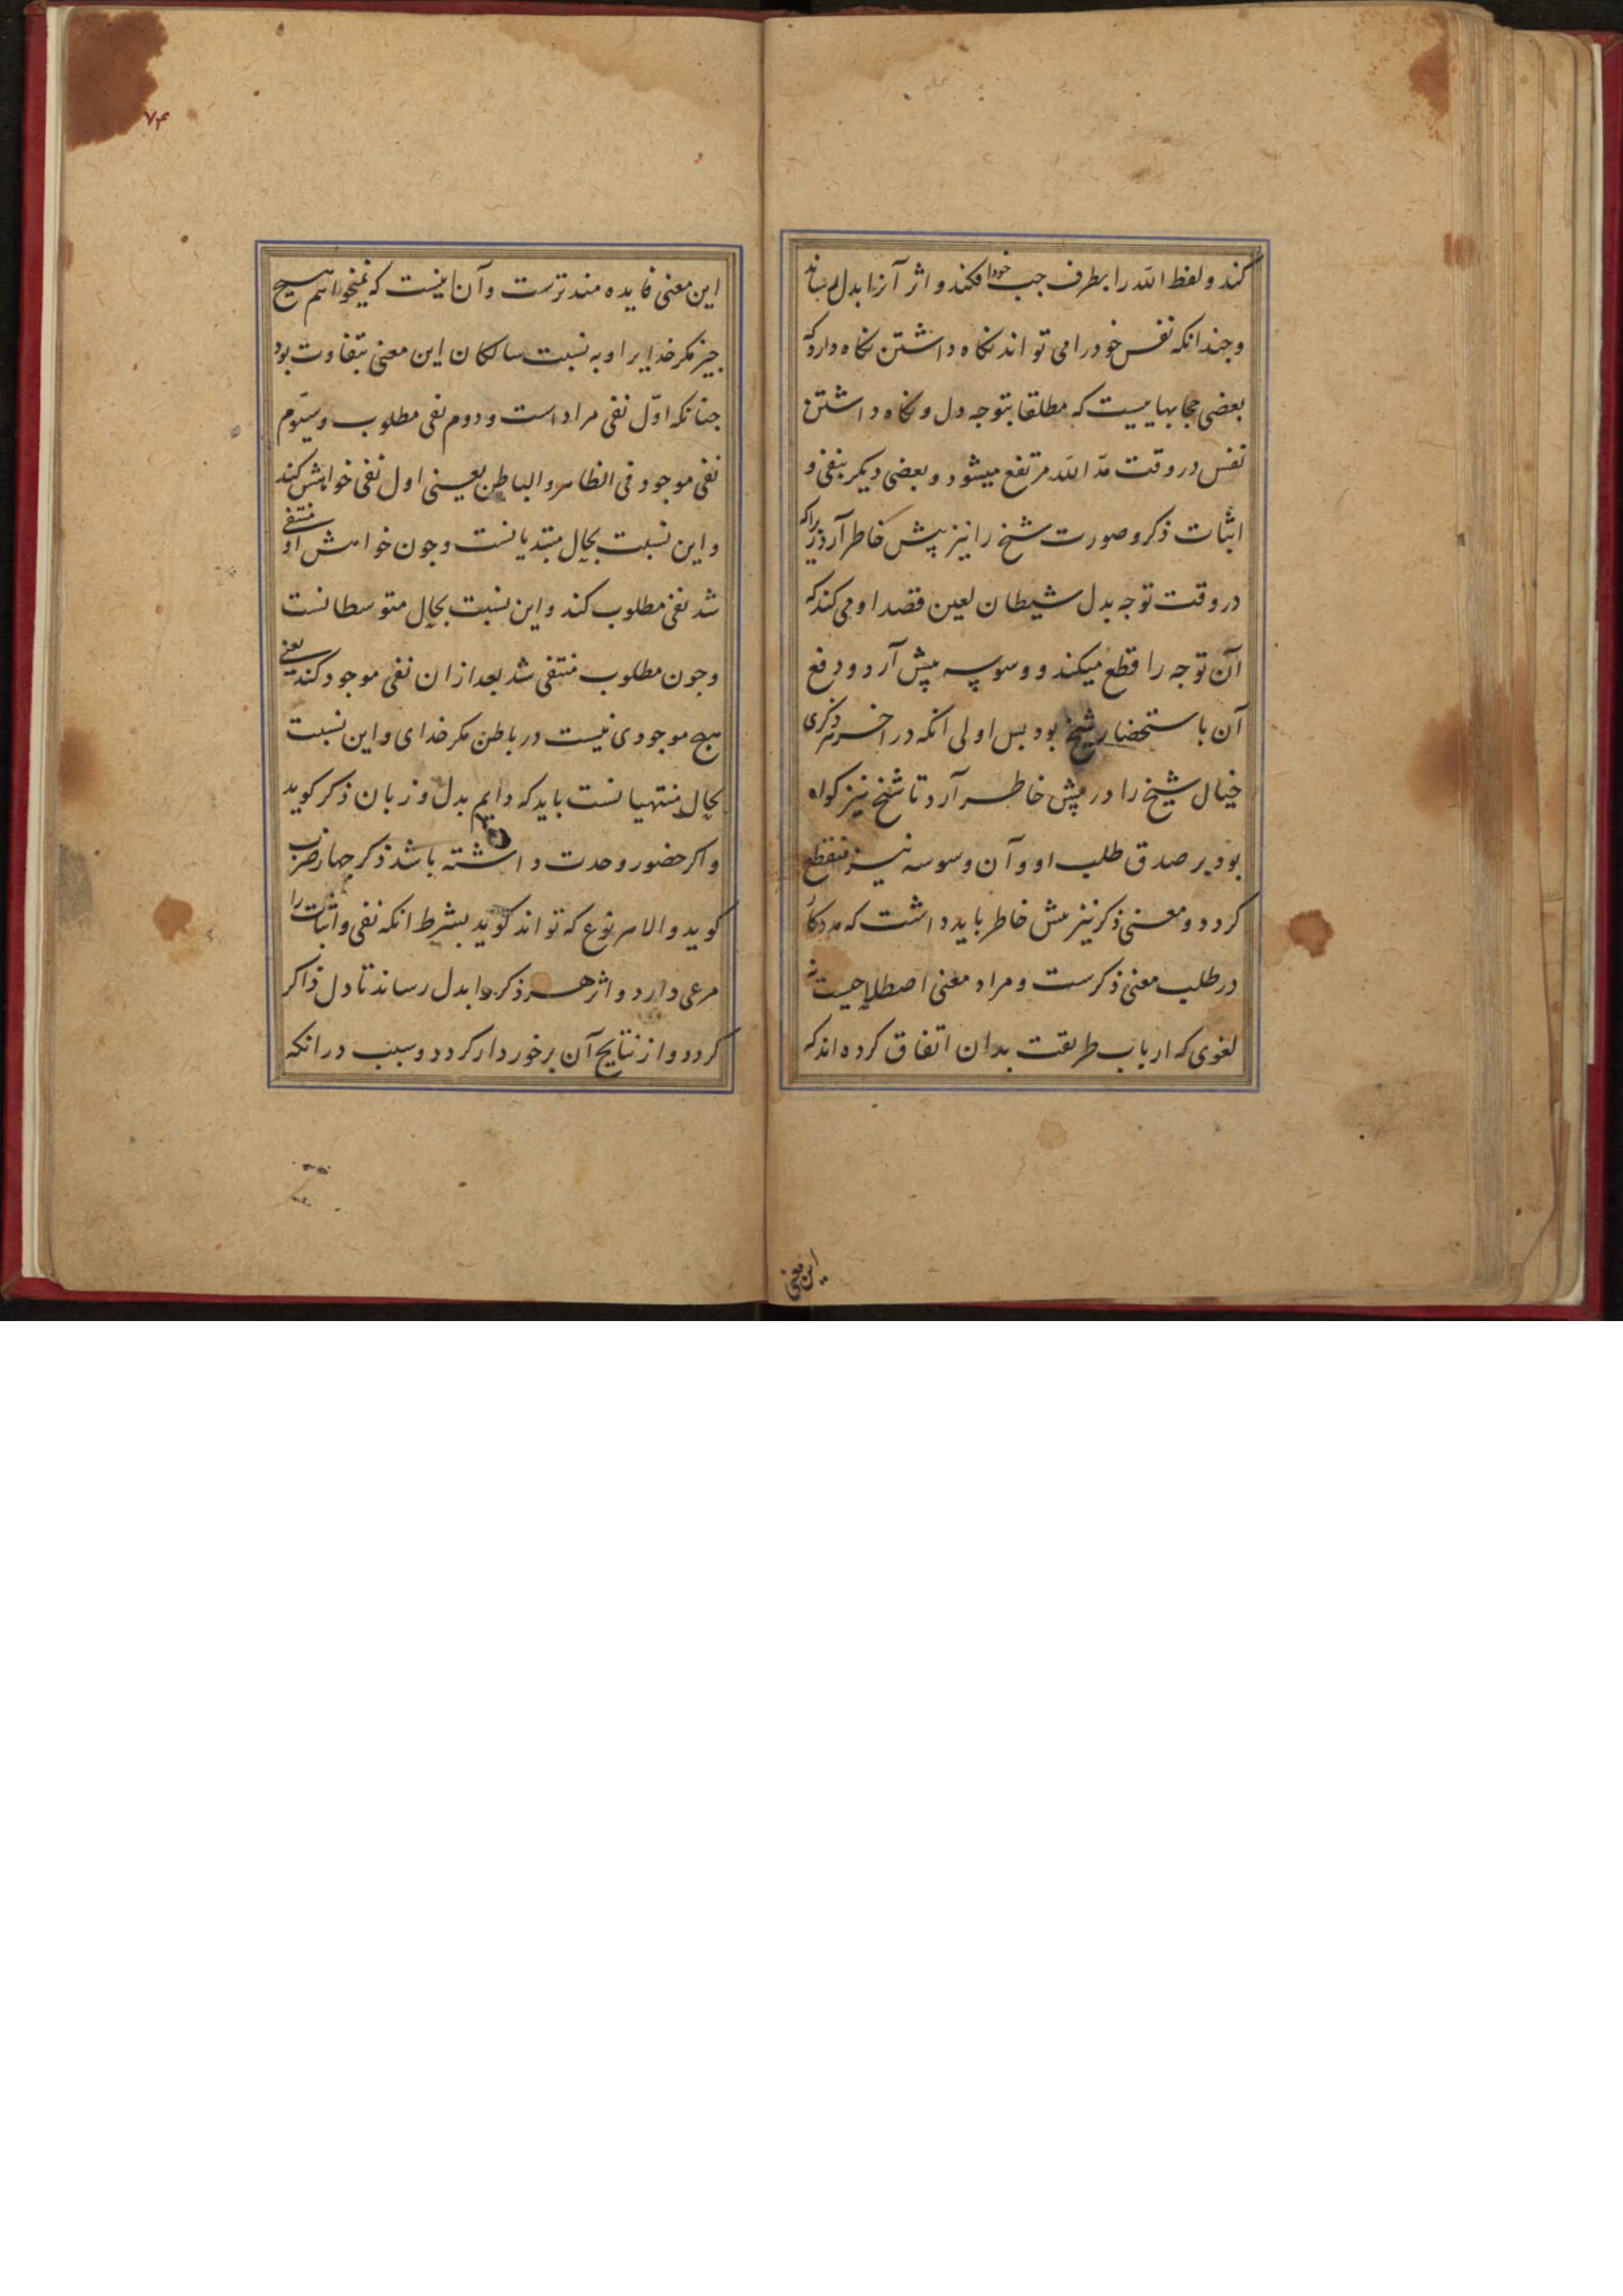 کند و لفظ الله را بطرف جب خود افکند و اثر آنرا بدل رساند
و جندانکه نفس خود را می تواند نکاه داشتن نکاه دارد که
بعضی حجابهاییست که مطلقا بتوجه دل و نکاه داشتن
نفس در وقت مدّ الله مرتفع میشود و بعضی دیکر بنفی و
اثبات ذکر و صورت شیخ را نیز پیش خاطر آرد زیرا که
در وقت توجه بدل شیطان لعین قصد او می کند که
آن توجه را قطع میکند و وسوسه پیش آرد و دفع
آن باستحضار شیخ بود بس اولی انکه در اخر هر ذکری
خیال شیخ را در پیش خاطر آرد تا شیخ نیز کواه
بود بر صدق طلب او و آن وسوسه نیز منقطع
کردد و معنی ذکر نیز پیش خاطر باید داشت که مددکار
در طلب معنی ذکرست و مراد معنی اصطلاحیست نه
لغوی که ارباب طریقت بدان اتفاق کرده اند که
این معنی
۷۴
این معنی فایده مند ترست و آن اینست که نمیخواهم هیچ
جیز مکر خدایرا و به نسبت سالکان این معنی بتفاوت بود
جنانکه اوّل نفی مراد است و دوم نفی مطلوب و سیّوم
نفی موجود فی الظاهر و الباطن یعینی اول نفی خواهش کند
و این نسبت بحال مبتدیانست و جون خواهش او منتفی
شد نفی مطلوب کند و این نسبت بحال متوسطانست
و جون مطلوب منتفی شد بعد ازان نفی موجود کند یعنی
هیج موجودی نیست در باطن مکر خدای و این نسبت
بحال منتهیانست باید که دایم بدل و زبان ذکر کوید
و اکر حضور وحدت داشته باشد ذکر جهار ضرب
کوید و الا هر نوع که تواند کوید بشرط انکه نفی و اثبات را
مرعی دارد و اثر هر ذکر را بدل رساند تا دل ذاکر
کردد و از نتایج آن برخوردار کردد و سبب در انکه